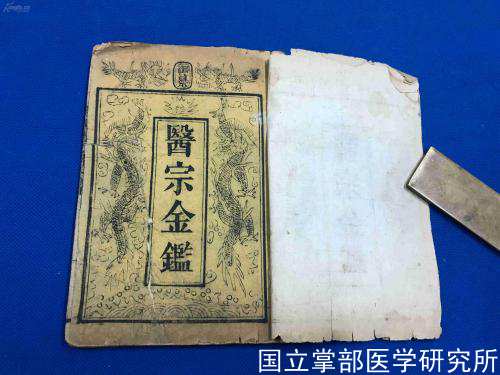 御纂
醫宗金鑑
国立掌部医学研究所